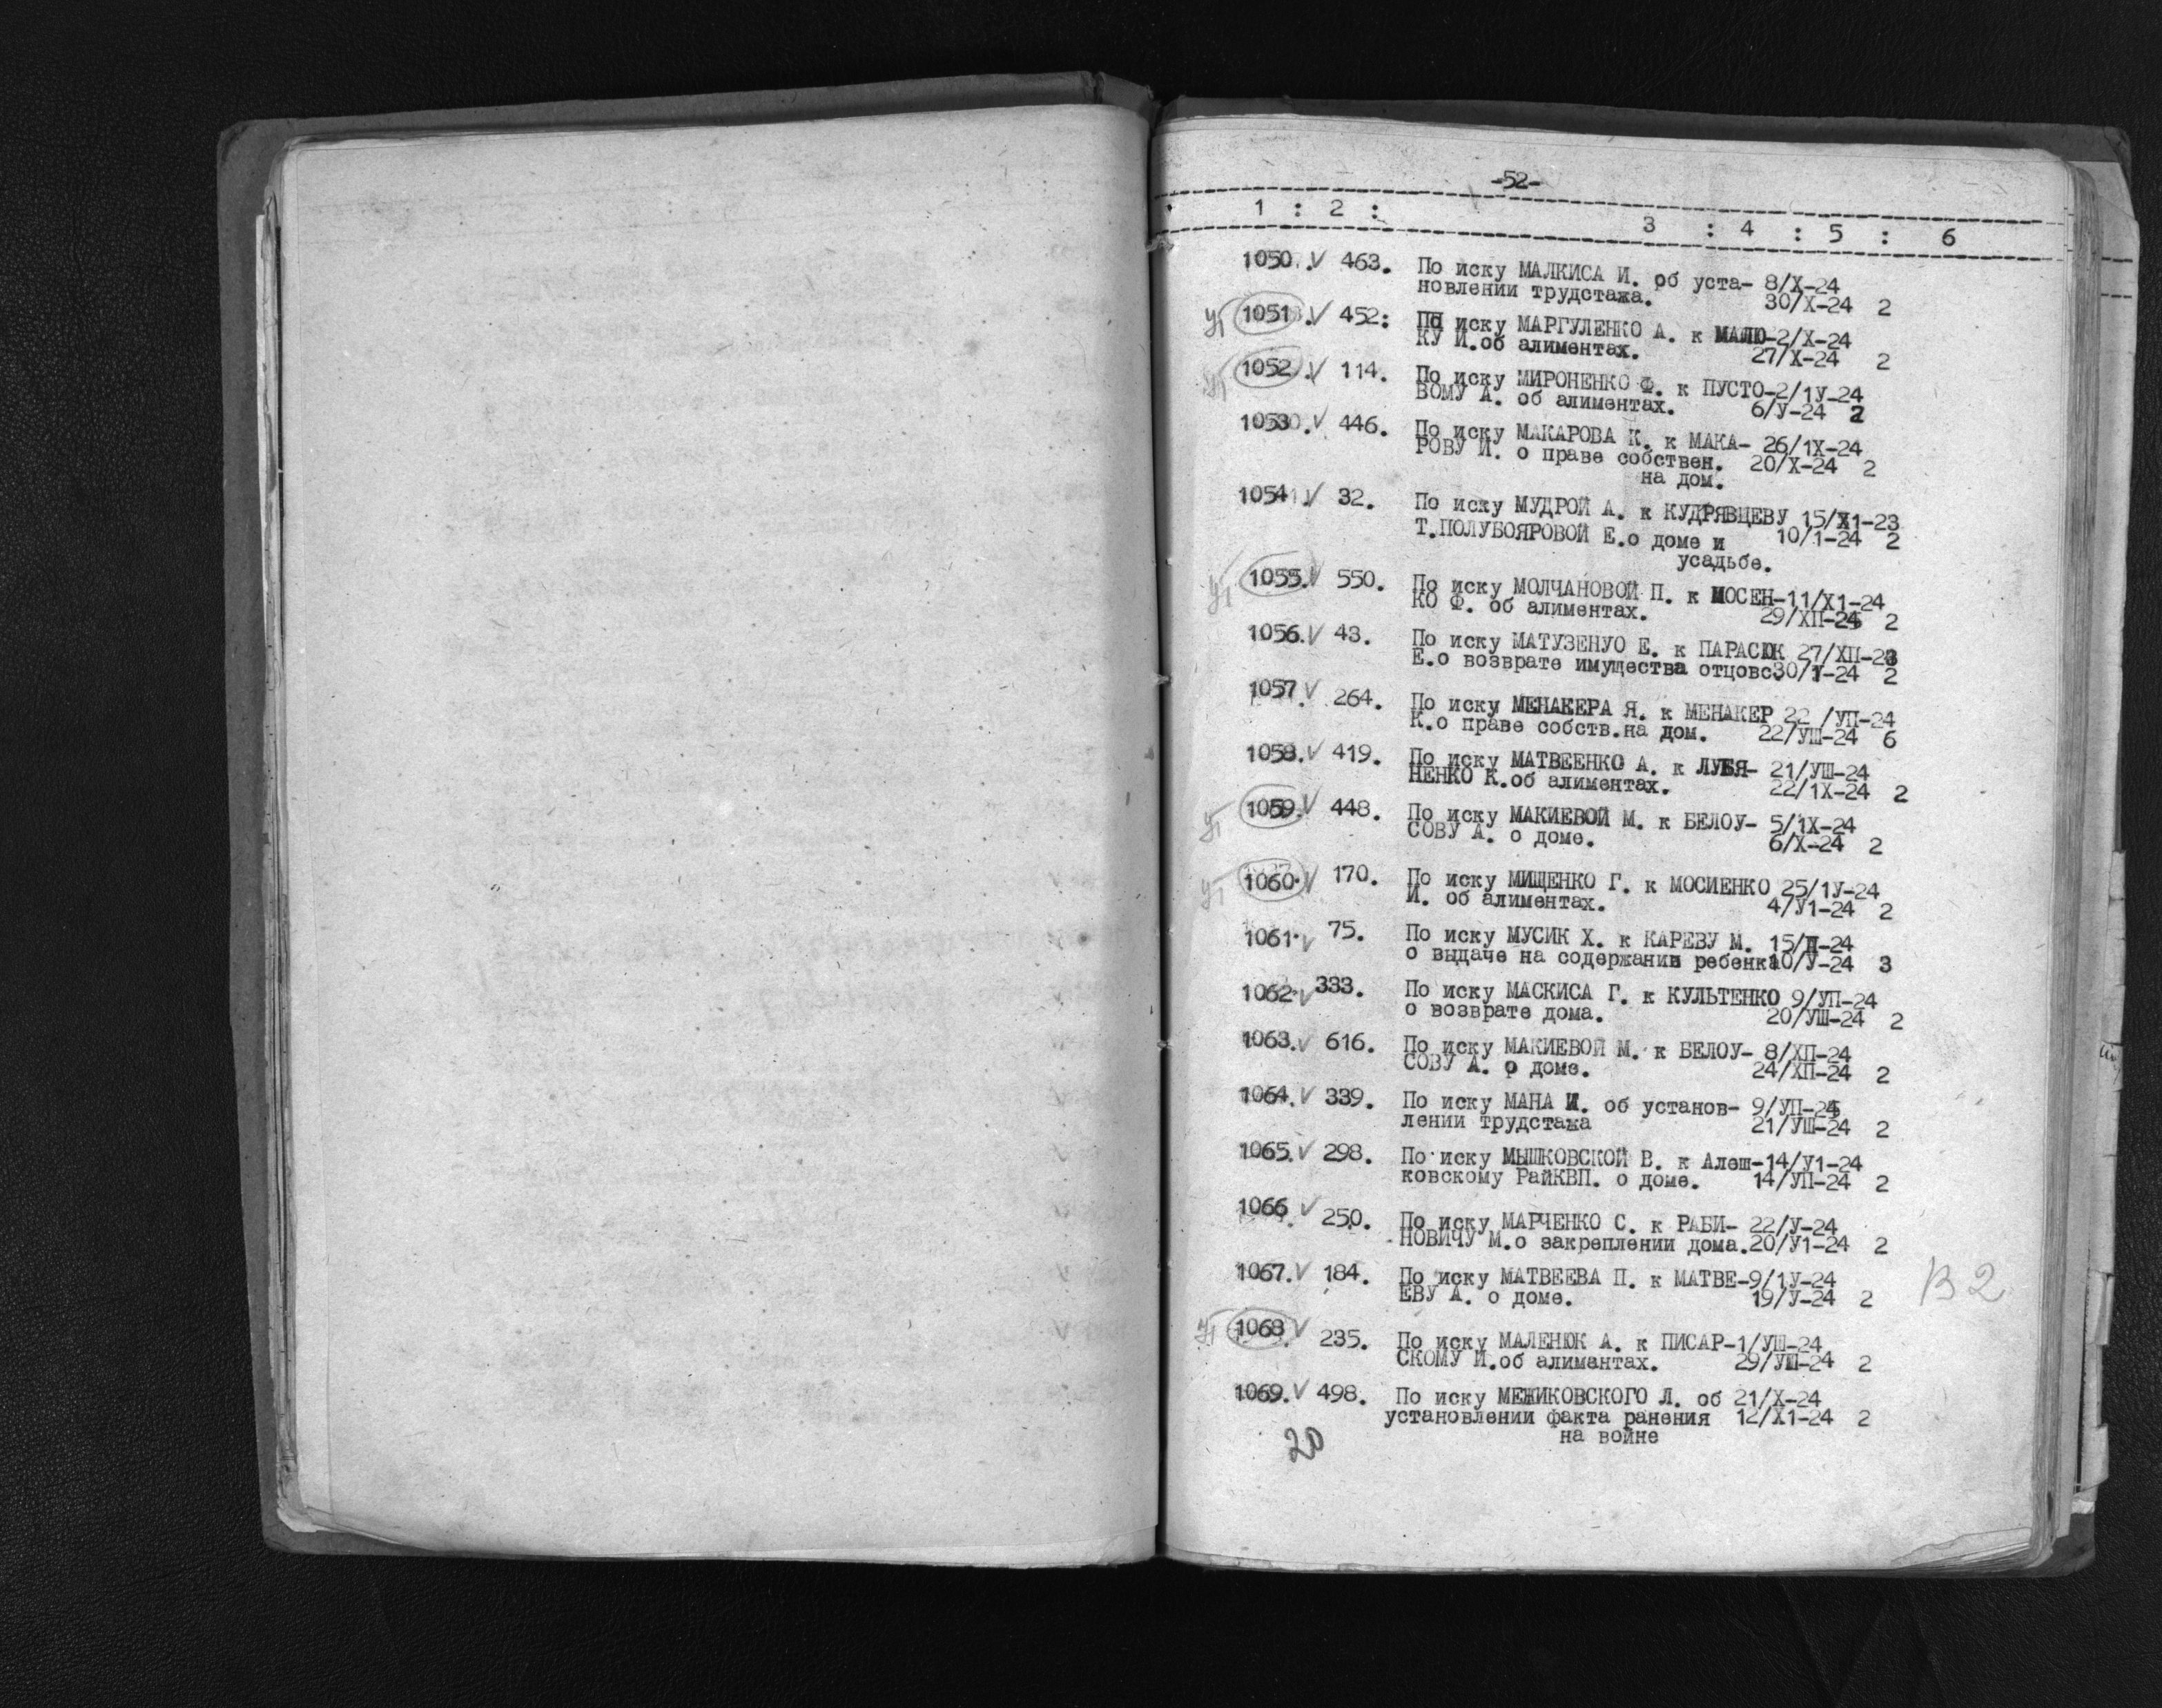 -52-
1 : 2 : 3 : 4 : 5 : 6
1050. V 463. По иску МАЛКИСА И. об уста- 8/X-24
новлении трудстажа. 30/X-24 2
1051. V 452: По иску МАРГУЛЕНКО А. к МАЛЮ-2/X-24
КУ И.об алиментах. 27/X-24 2
1052. V 114. По иску МИРОНЕНКО Ф. к ПУСТО-2/1У-24
ВОМУ А. об алиментах. 6/У-24 2
1053. V 446. По иску МАКАРОВА К. к МАКА- 26/1X-24
РОВУ И. о праве собствен. 20/X-24 2
на дом.
1054. V 32. По иску МУДРОЙ А. к КУДРЯВЦЕВУ 15/X1-23
Т.ПОЛУБОЯРОВОЙ Е.о доме и 10/1-24 2
усадьбе.
1055. V 550. По иску МОЛЧАНОВОЙ П. к МОСЕН-11/X1-24
КО Ф. об алиментах. 29/ХП-24 2
1056. V 43. По иску МАТУЗЕНУО Е. к ПАРАСЮК 27/ХП-23
Е.о возврате имущества отцовс. 30/1-24 2
1057. V 264. По иску МЕНАКЕРА Я. к МЕНАКЕР 22 /УП-24
К.о праве собств.на дом. 22/УШ-24 6
1058. V 419. По иску МАТВЕЕНКО А. к ЛУБЯ- 21/УШ-24
НЕНКО К.об алиментах. 22/1X-24 2
1059. V 448. По иску МАКИЕВОЙ М. к БЕЛОУ- 5/1X-24
СОВУ А. о доме. 6/X-24 2
1060. V 170. По иску МИЩЕНКО Г. к МОСИЕНКО 25/1У-24
И. об алиментах. 4/У1-24 2
1061. V 75. По иску МУСИК Х. к КАРЕВУ М. 15/П-24
о выдаче на содержание ребенка 10/У-24 3
1062. V 333. По иску МАСКИСА Г. к КУЛЬТЕНКО 9/УП-24
о возврате дома. 20/УШ-24 2
1063. V 616. По иску МАКИЕВОЙ М. к БЕЛОУ- 8/ХП-24
СОВУ А. о доме. 24/ХП-24 2
1064. V 339. По иску МАНА И. об установ- 9/УП-24
лении трудстажа 21/УШ-24 2
1065. V 298. По иску МЫШКОВСКОЙ В. к Алеш-14/У1-24
ковскому РайКВП. о доме. 14/УП-24 2
1066. V 250. По иску МАРЧЕНКО С. к РАБИ- 22/У-24
НОВИЧУ М.о закреплении дома.20/У1-24 2
1067. V 184. По иску МАТВЕЕВА П. к МАТВЕ-9/1У-24
ЕВУ А. о доме. 19/У-24 2
В 2
1068. V 235. По иску МАЛЕНЮК А. к ПИСАР-1/УШ-24
СКОМУ И.об алимантах. 29/УШ-24 2
1069. V 498. По иску МЕЖИКОВСКОГО Л. об 21/X-24
установлении факта ранения 12/X1-24 2
на войне
20